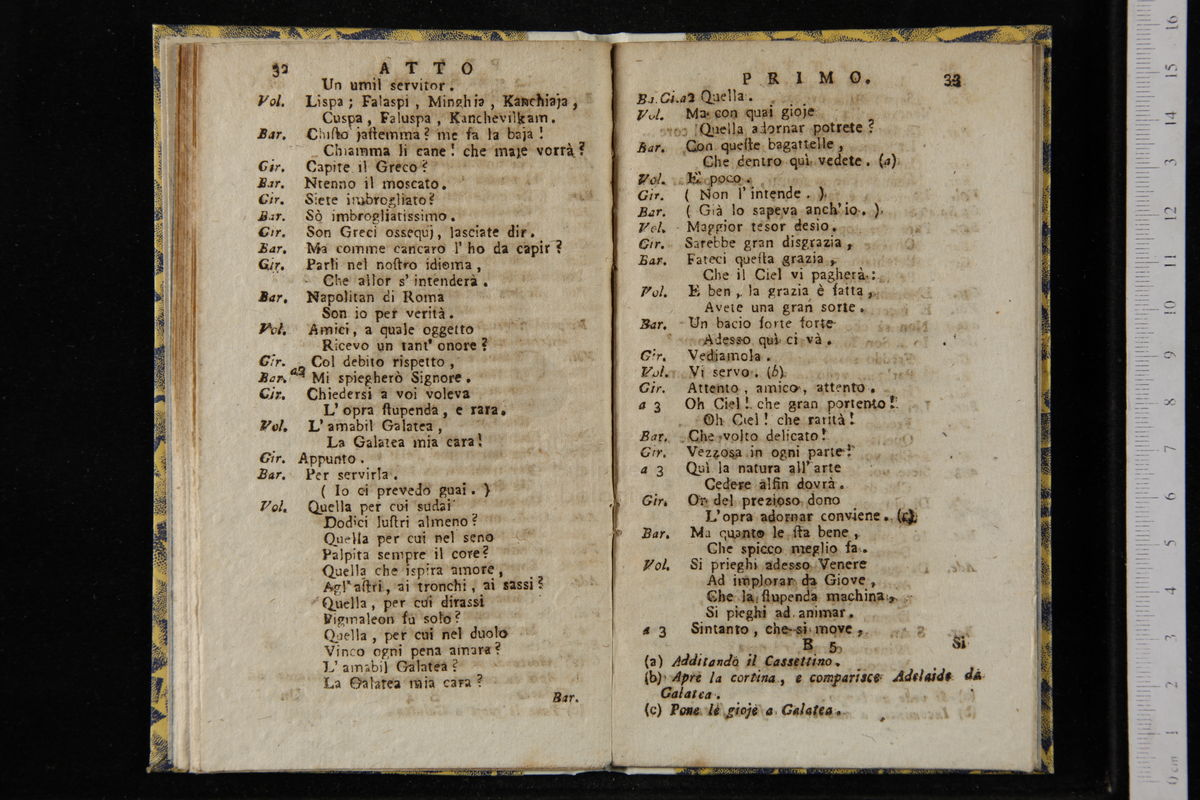 32 ATTO
Un umil servitor.
Vol. Lispa; Falaspi, Minghia, Kanchiaja,
Cuspa, Faluspa, Kanchevilkam.
Bar. Chisto jastemma? me fa la baja!
Chiamma li cane! che maje vorrà?
Gir. Capite il Greco?
Bar. Ntenno il moscato.
Gir. Siete imbrogliato?
Bar. Sò imbrogliatissimo.
Gir. Son Greci ossequj, lasciate dir.
Bar. Ma comme cancaro l'ho da capir?
Gir. Parli nel nostro idioma,
Che allor s'intenderà.
Bar. Napolitan di Roma
Son io per verità.
Vol. Amici, a quale oggetto
Ricevo un tant' onore?
Gir. Col debito rispetto,
Bar. a2 Mi spiegherò Signore.
Gir. Chiedersi a voi voleva
L'opra stupenda, e rara.
Vol. L'amabil Galatea,
La Galatea mia cara!
Gir. Appunto.
Bar. Per servirla.
( Io ci prevedo guai. )
Vol. Quella per cui sudai
Dodici lustri almeno?
Quella per cui nel seno
Palpita sempre il core?
Quella che ispira amore,
Agl'astri, ai tronchi, ai sassi?
Quella, per cui dirassi
Pigmaleon fu solo?
Quella, per cui nel duolo
Vinco ogni pena amara?
L'amabil Galatea?
La Galatea mia cara?
Bar.
PRIMO. 33
Ba. Gi. a2 Quella.
Vol. Ma con quai gioje
Quella adornar potrete?
Bar. Con queste bagattelle,
Che dentro quì vedete. (a)
Vol. E' poco.
Gir. ( Non l'intende. )
Bar. ( Già lo sapeva anch'io. )
Vol. Maggior tesor desio.
Gir. Sarebbe gran disgrazia,
Bar. Fateci questa grazia,
Che il Ciel vi pagherà:
Vol. E ben, la grazia è fatta,
Avete una gran sorte.
Bar. Un bacio forte forte
Adesso quì ci và.
Gir. Vediamola.
Vol. Vi servo. (b)
Gir. Attento, amico, attento.
a 3 Oh Ciel! che gran portento!
Oh Ciel! che rarità!
Bar. Che volto delicato!
Gir. Vezzosa in ogni parte!
a 3 Quì la natura all'arte
Cedere alfin dovrà.
Gir. Or del prezioso dono
L'opra adornar conviene. (c)
Bar. Ma quanto le sta bene,
Che spicco meglio fa.
Vol. Si prieghi adesso Venere
Ad implorar da Giove,
Che la stupenda machina,
Si pieghi ad animar.
a 3 Sintanto, che si move,
B 5 Si
(a) Additando il Cassettino.
(b) Apre la cortina, e comparisce Adelaide da
Galatea.
(c) Pone le gioje a Galatea.